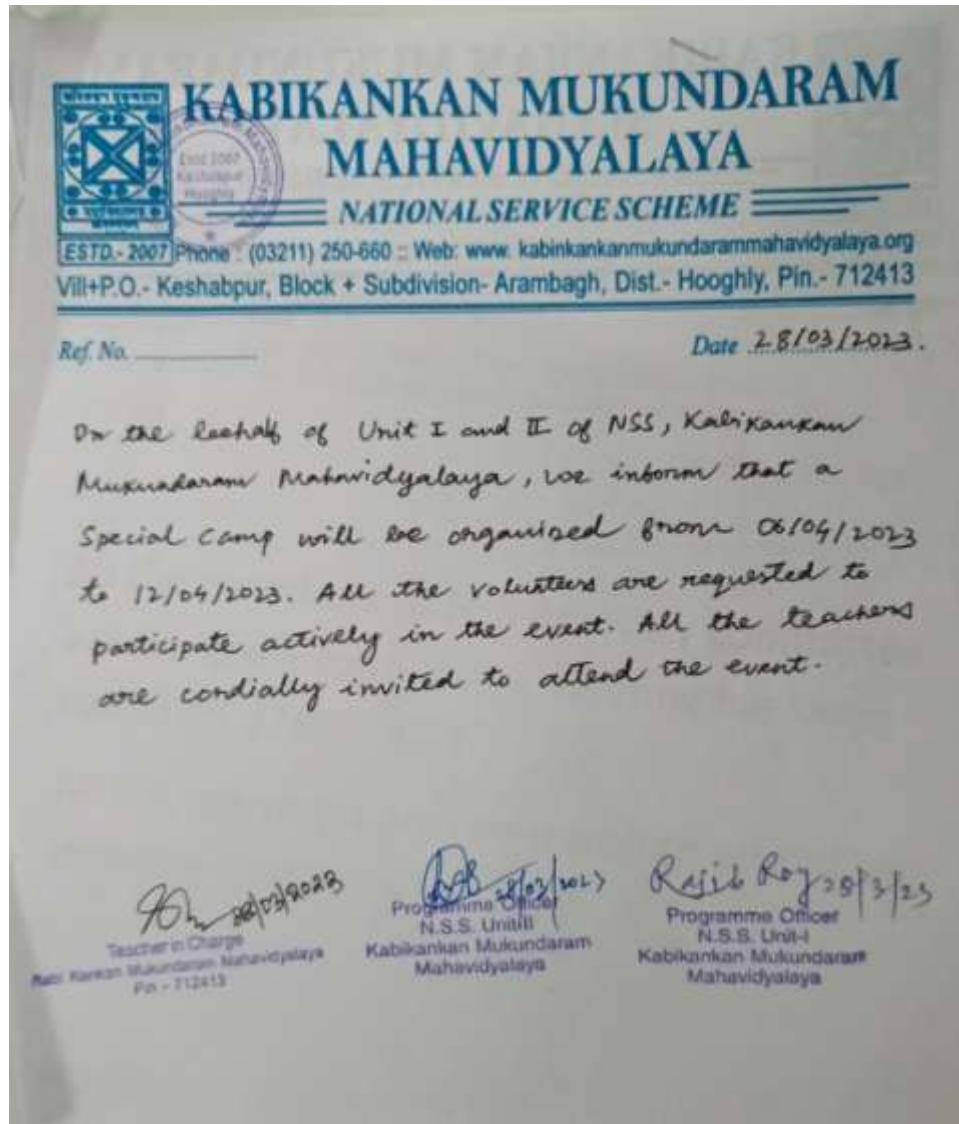 KABIKANKAN MUKUNDARAM
MAHAVIDYALAYA
NATIONAL SERVICE SCHEME
Estd 2007
Keshabpur
Hooghly
ESTD.- 2007 Phone : (03211) 250-660 :: Web: www. kabinkankanmukundarammahavidyalaya.org
Vill+P.O.- Keshabpur, Block + Subdivision- Arambagh, Dist.- Hooghly, Pin.- 712413
Ref. No.
Date 28/03/2023.
On the beehalf of Unit I and II of NSS, Kabikankan
Mukundaram Mahavidyalaya, we inform that a
Special Camp will be organised from 06/04/2023
to 12/04/2023. All the volunteers are requested to
participate actively in the event. All the teachers
are cordially invited to attend the event.
28/03/2023
Teacher in Charge
Kabi Kankan Mukundaram Mahavidyalaya
Pin - 712413
28/03/2023
Programme Officer
N.S.S. Unit-II
Kabikankan Mukundaram
Mahavidyalaya
Rajib Roy 28/3/23
Programme Officer
N.S.S. Unit-I
Kabikankan Mukundaram
Mahavidyalaya